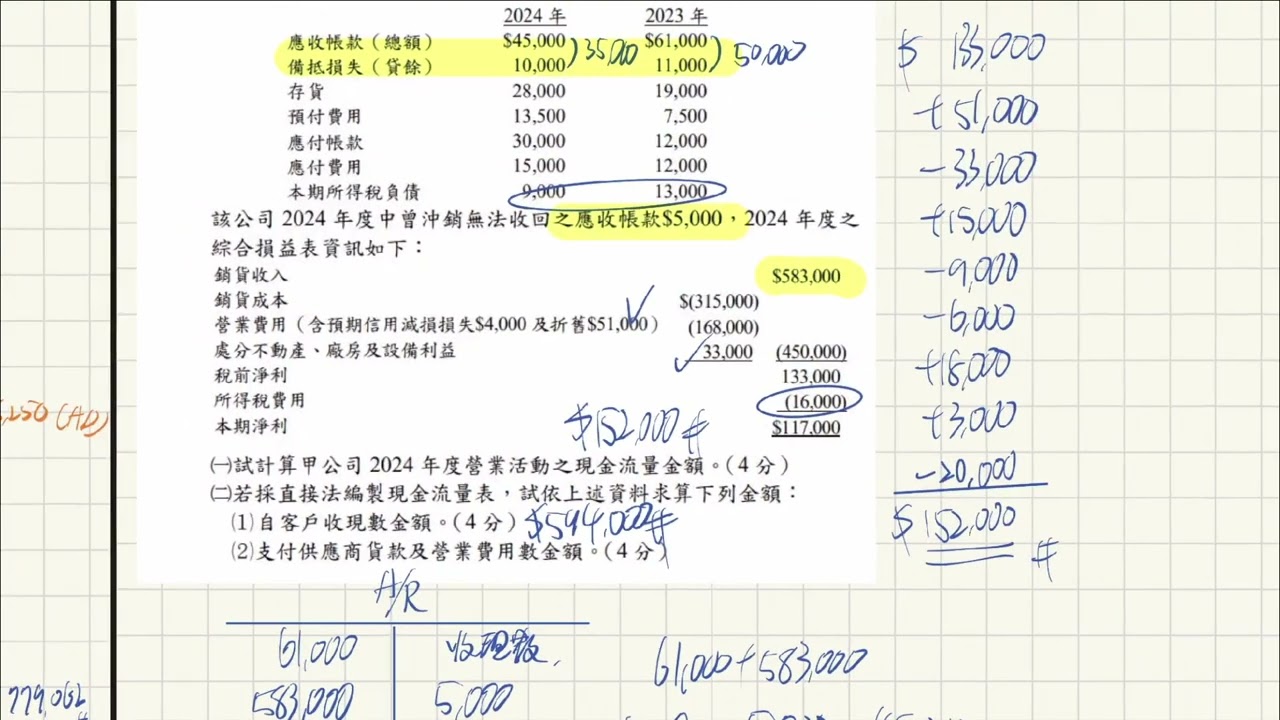 2024 年 2023 年
應收帳款（總額） $45,000 ) 35,000 $61,000 ) 50,000
備抵損失（貸餘） 10,000 11,000
存貨 28,000 19,000
預付費用 13,500 7,500
應付帳款 30,000 12,000
應付費用 15,000 12,000
本期所得稅負債 9,000 13,000
該公司 2024 年度中曾沖銷無法收回之應收帳款$5,000，2024 年度之
綜合損益表資訊如下：
銷貨收入 $583,000
銷貨成本 $(315,000)
營業費用（含預期信用減損損失$4,000 及折舊$51,000） (168,000)
處分不動產、廠房及設備利益 33,000 (450,000)
稅前淨利 133,000
所得稅費用 (16,000)
本期淨利 $117,000
$152,000 #
㈠試計算甲公司 2024 年度營業活動之現金流量金額。（4 分）
㈡若採直接法編製現金流量表，試依上述資料求算下列金額：
⑴自客戶收現數金額。（4 分） $594,000 #
⑵支付供應商貨款及營業費用數金額。（4 分）
$ 133,000
+ 51,000
- 33,000
+15,000
- 9,000
- 6,000
+18,000
+ 3,000
- 20,000
$ 152,000 #
,250 (AD)
A/R
61,000 收現數
583,000 5,000
61,000 + 583,000